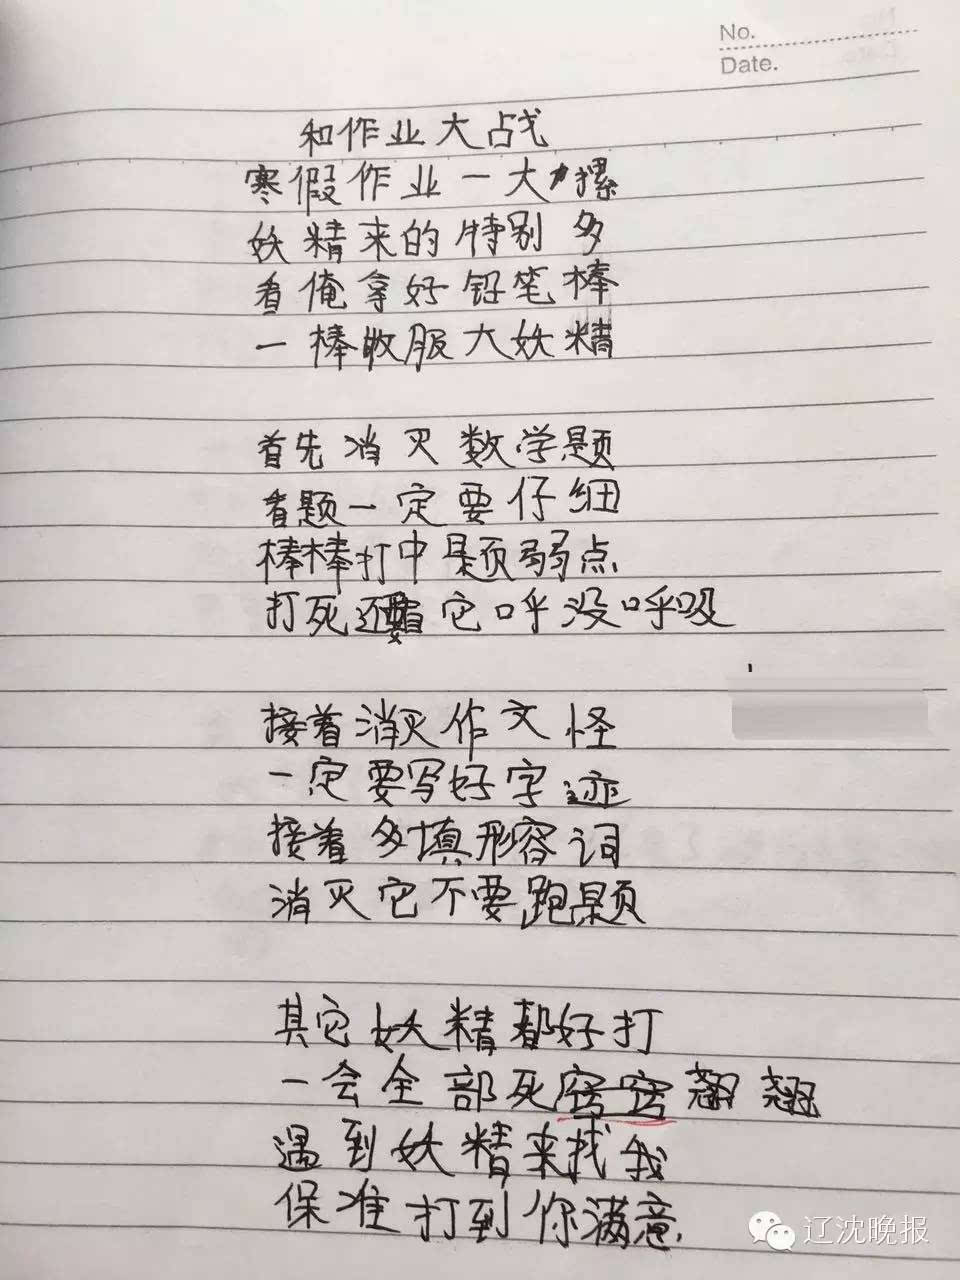 No.
Date.
和作业大战
寒假作业一大摞
妖精来的特别多
看俺拿好铅笔棒
一棒收服大妖精
首先消灭数学题
看题一定要仔细
棒棒打中题弱点
打死还要它呼没呼吸
接着消灭作文怪
一定要写好字迹
接着多填形容词
消灭它不要跑题
其它妖精都好打
一会全部死翘翘
遇到妖精来找我
保准打到你满意
辽沈晚报